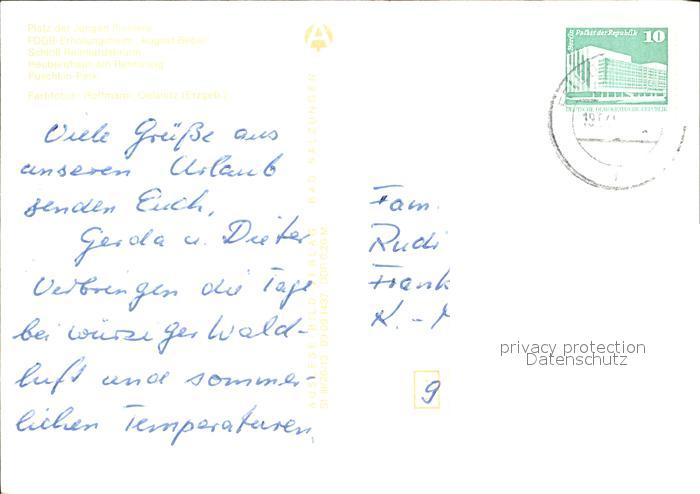 Platz der Jungen Pioniere
FDGB-Erholungsheim "August Bebel"
Schloß Reinhardsbrunn
Heuberghaus am Rennsteig
Puschkin-Park
Farbfotos: Hoffmann, Oelsnitz (Erzgeb.)
Viele Grüße aus
anseren Urlaub
senden Euch,
Gerda u. Dieter
Verbringen die Tage
bei würziger Wald-
luft und sommer-
lichen Temperaturen.
AUSLESE-BILD-VERLAG BAD SALZUNGEN
Berlin Palast der Republik
10
DEUTSCHE DEMOKRATISCHE REPUBLIK
Fam.
Rudi
Frank
K. -
9
privacy protection
Datenschutz